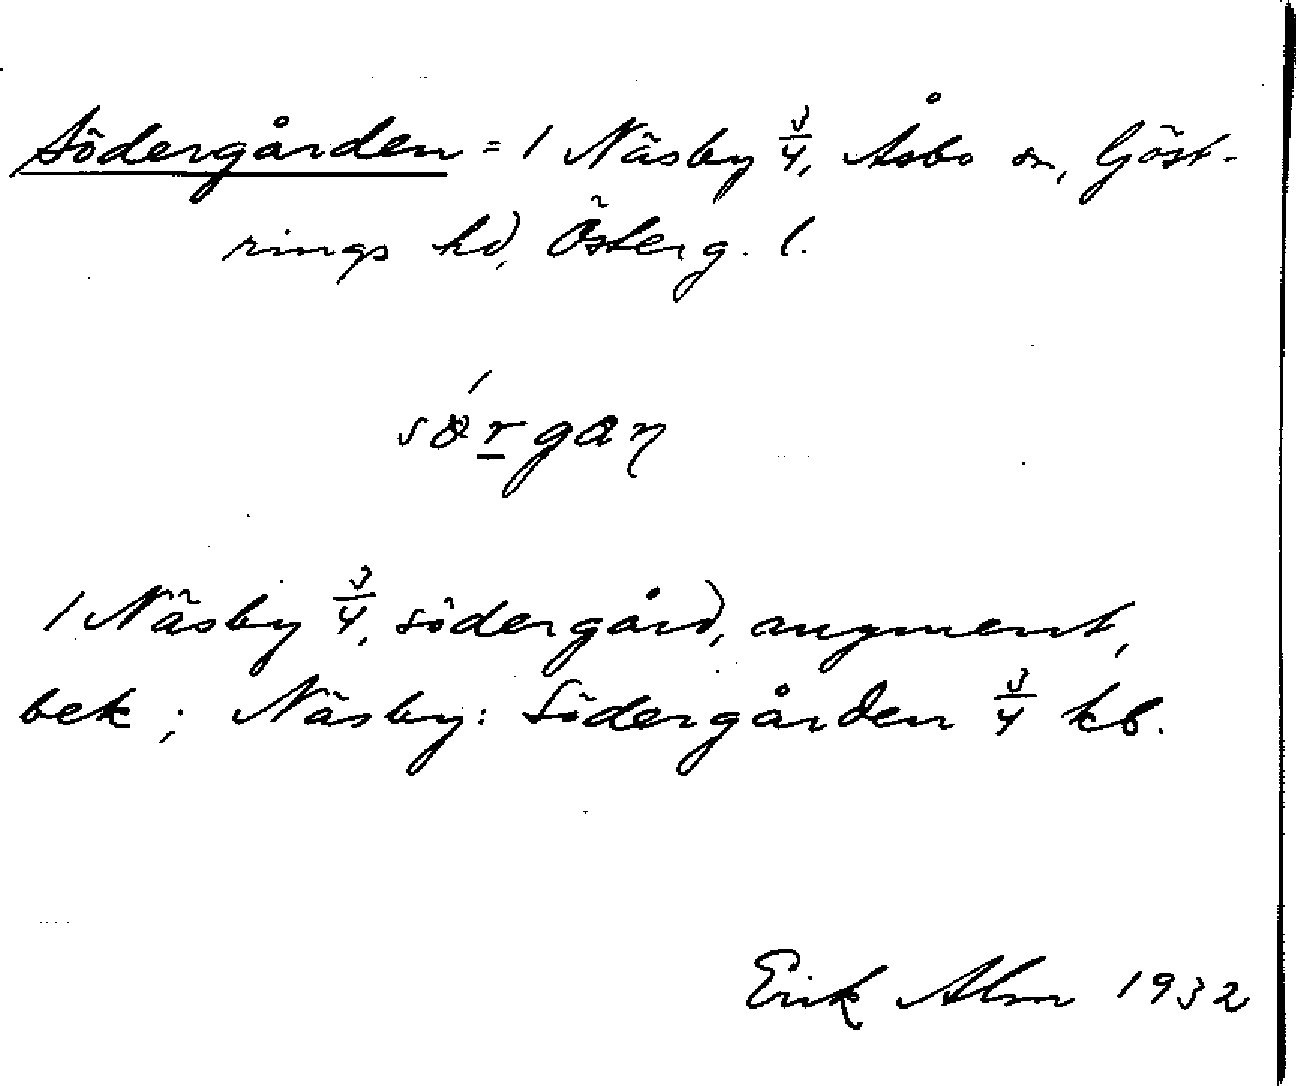 Södergården = 1 Näsby 3/4, Åsbo sn, Göst-
rings hd, Österg. l.
sørgaɳ
1 Näsby 3/4, södergård, augment,
bek; Näsby: Södergården 3/4 kb.
Erik Alm 1932